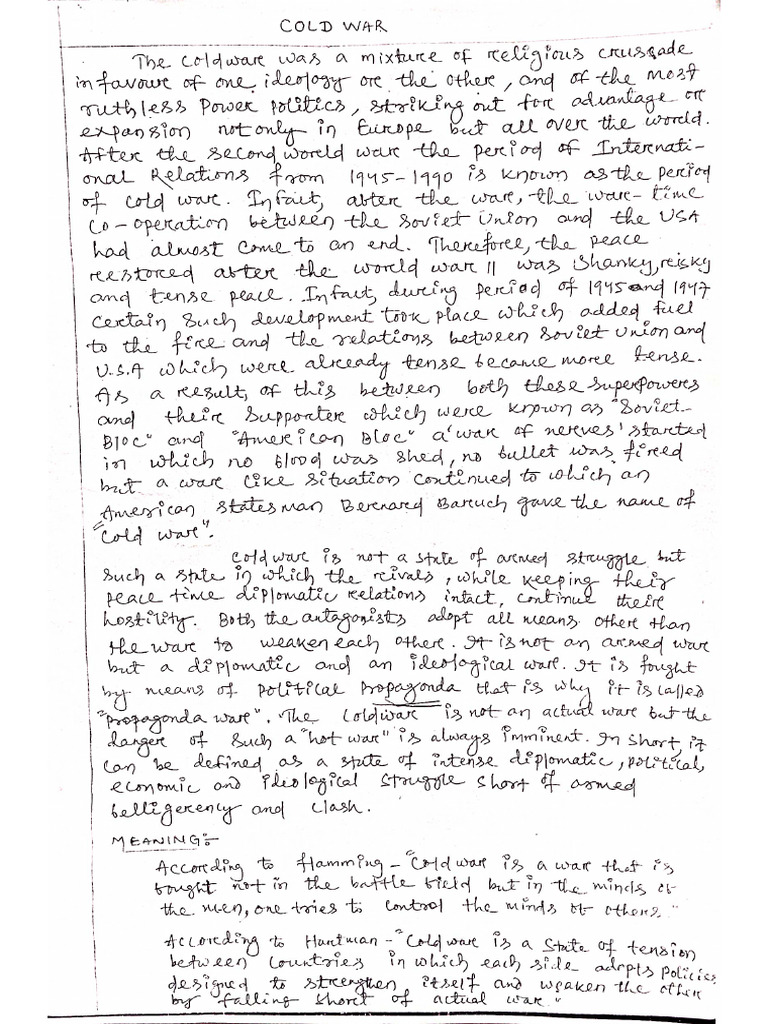 COLD WAR
The cold war was a mixture of religious crussade
in favour of one ideology or the other, and of the most
ruthless power politics, striking out for advantage or
expansion not only in Europe but all over the world.
After the second world war the period of Internati-
onal Relations from 1945-1990 is known as the period
of cold war. Infact, after the war, the war-time
co-operation between the Soviet Union and the USA
had almost come to an end. Therefore, the peace
restored after the world war II was shanky, risky
and tense peace. Infact, during period of 1945 and 1947
certain such development took place which added fuel
to the fire and the relations between Soviet Union and
U.S.A which were already tense became more tense.
As a result, of this between both these superpowers
and their supporter which were known as "Soviet-
Bloc" and "American Bloc" a 'war of nerves' started
in which no blood was shed, no bullet was fired
but a war like situation continued to which an
American statesman Bernard Baruch gave the name of
"Cold war".
Cold war is not a state of armed struggle but
such a state in which the rivals, while keeping their
peace time diplomatic relations intact, continue their
hostility. Both the antagonists adopt all means other than
the war to weaken each other. It is not an armed war
but a diplomatic and an ideological war. It is fought
by means of political propagonda that is why it is called
"propagonda war". The Cold war is not an actual war but the
danger of such a "hot war" is always imminent. In short, it
can be defined as a state of intense diplomatic, political,
economic and ideological struggle short of armed
belligerency and clash.
MEANING:-
According to flamming - "Cold war is a war that is
fought not in the battle field but in the minds of
the men, one tries to control the minds of others."
According to Hartman - "Cold war is a state of tension
between countries in which each side adopts policies
designed to strengthen itself and weaken the other
by falling short of actual war."